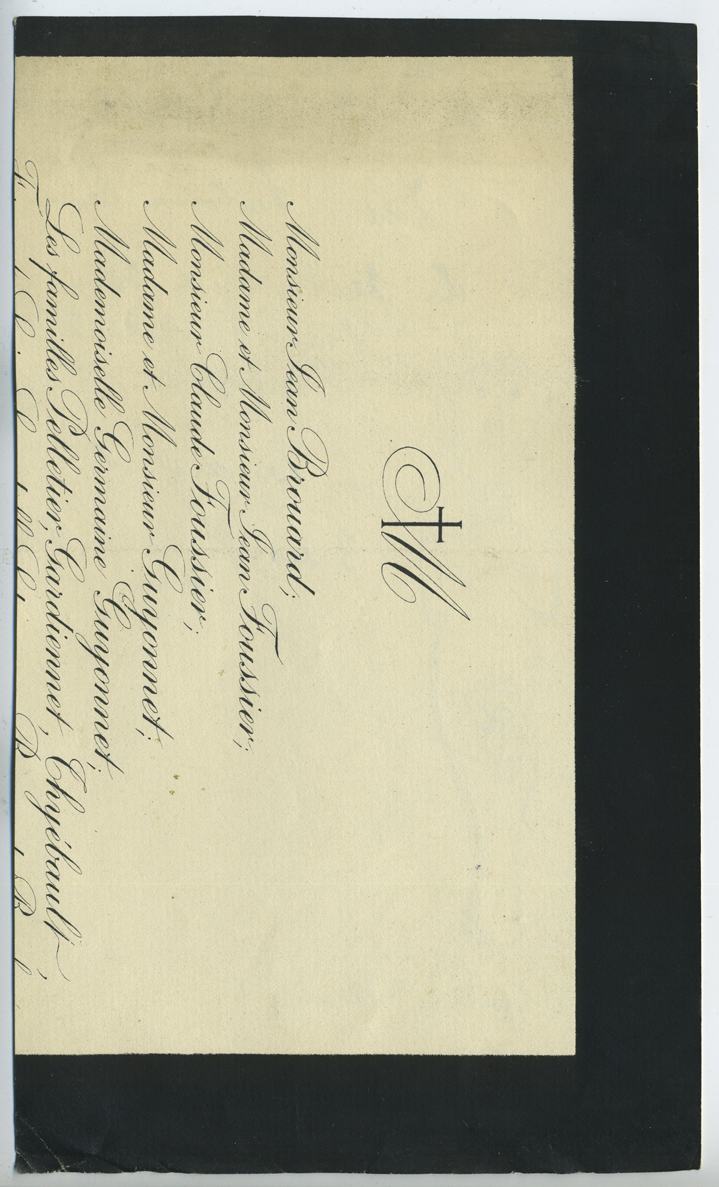 M
Monsieur Jean Brouard;
Madame et Monsieur Jean Foussier;
Monsieur Claude Foussier;
Madame et Monsieur Guyonnet;
Mademoiselle Germaine Guyonnet;
Les familles Pelletier, Gardiennet, Thyébault,